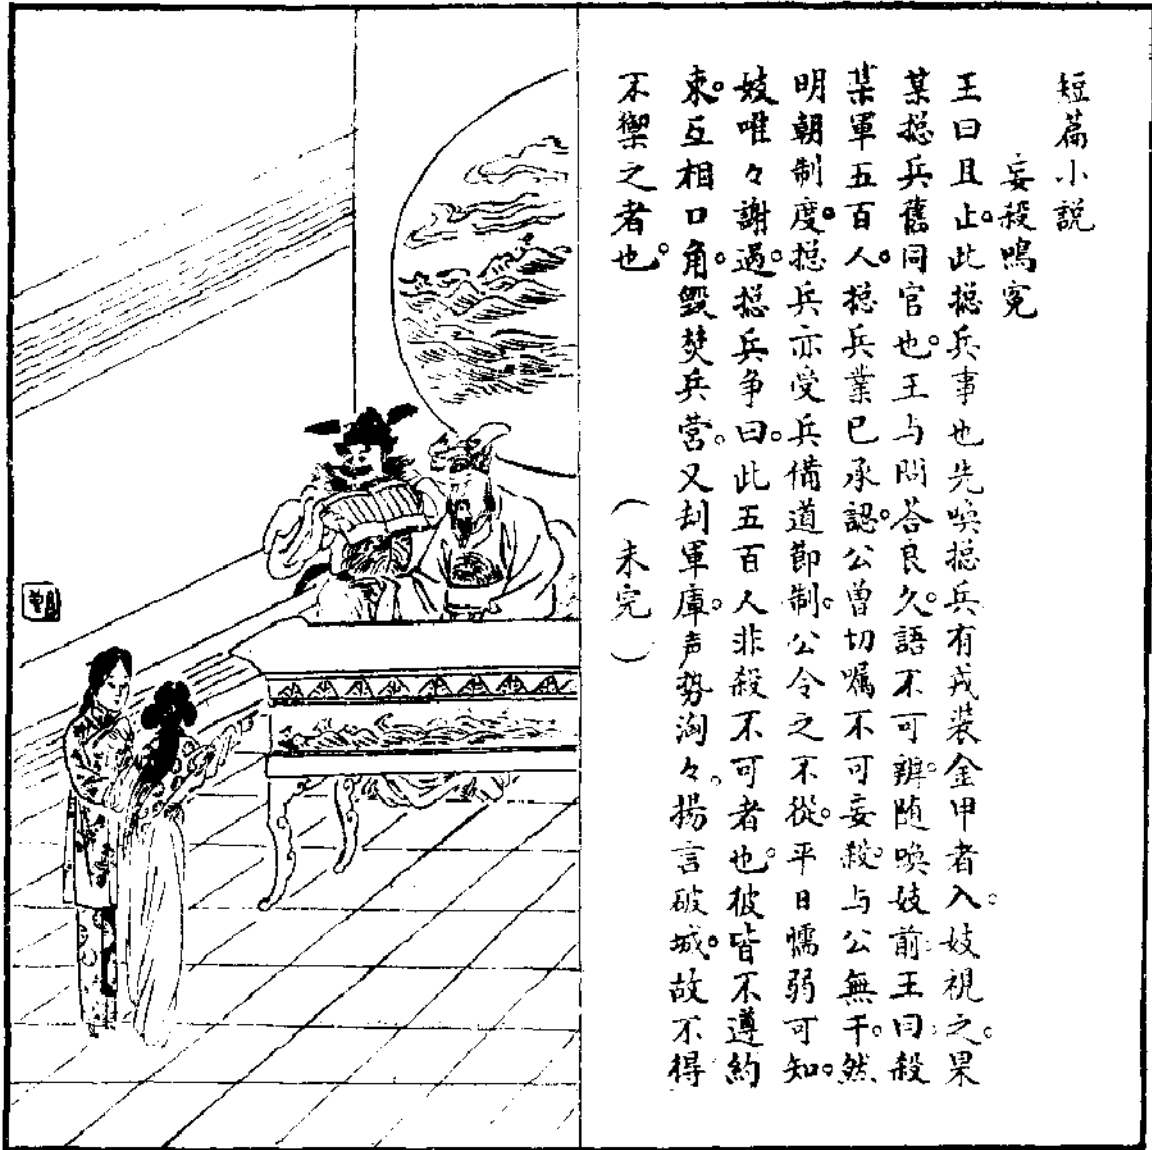 短篇小説
妄殺鳴冤
王曰且止。此揔兵事也先喚揔兵有戎装金甲者入。妓視之。果
某揔兵舊同官也。王与問荅良久。語不可辨。随喚妓前。王曰。殺
某軍五百人。揔兵業已承認。公曽切嘱不可妄殺。与公無干。然
明朝制度。揔兵亦受兵備道節制。公令之不從。平日懦弱可知。
妓唯々謝過。揔兵争曰。此五百人非殺不可者也。彼皆不遵約
束。互相口角。毀焚兵营。又刦軍庫。声势洶々。揚言破城。故不得
不禦之者也。
（未完）